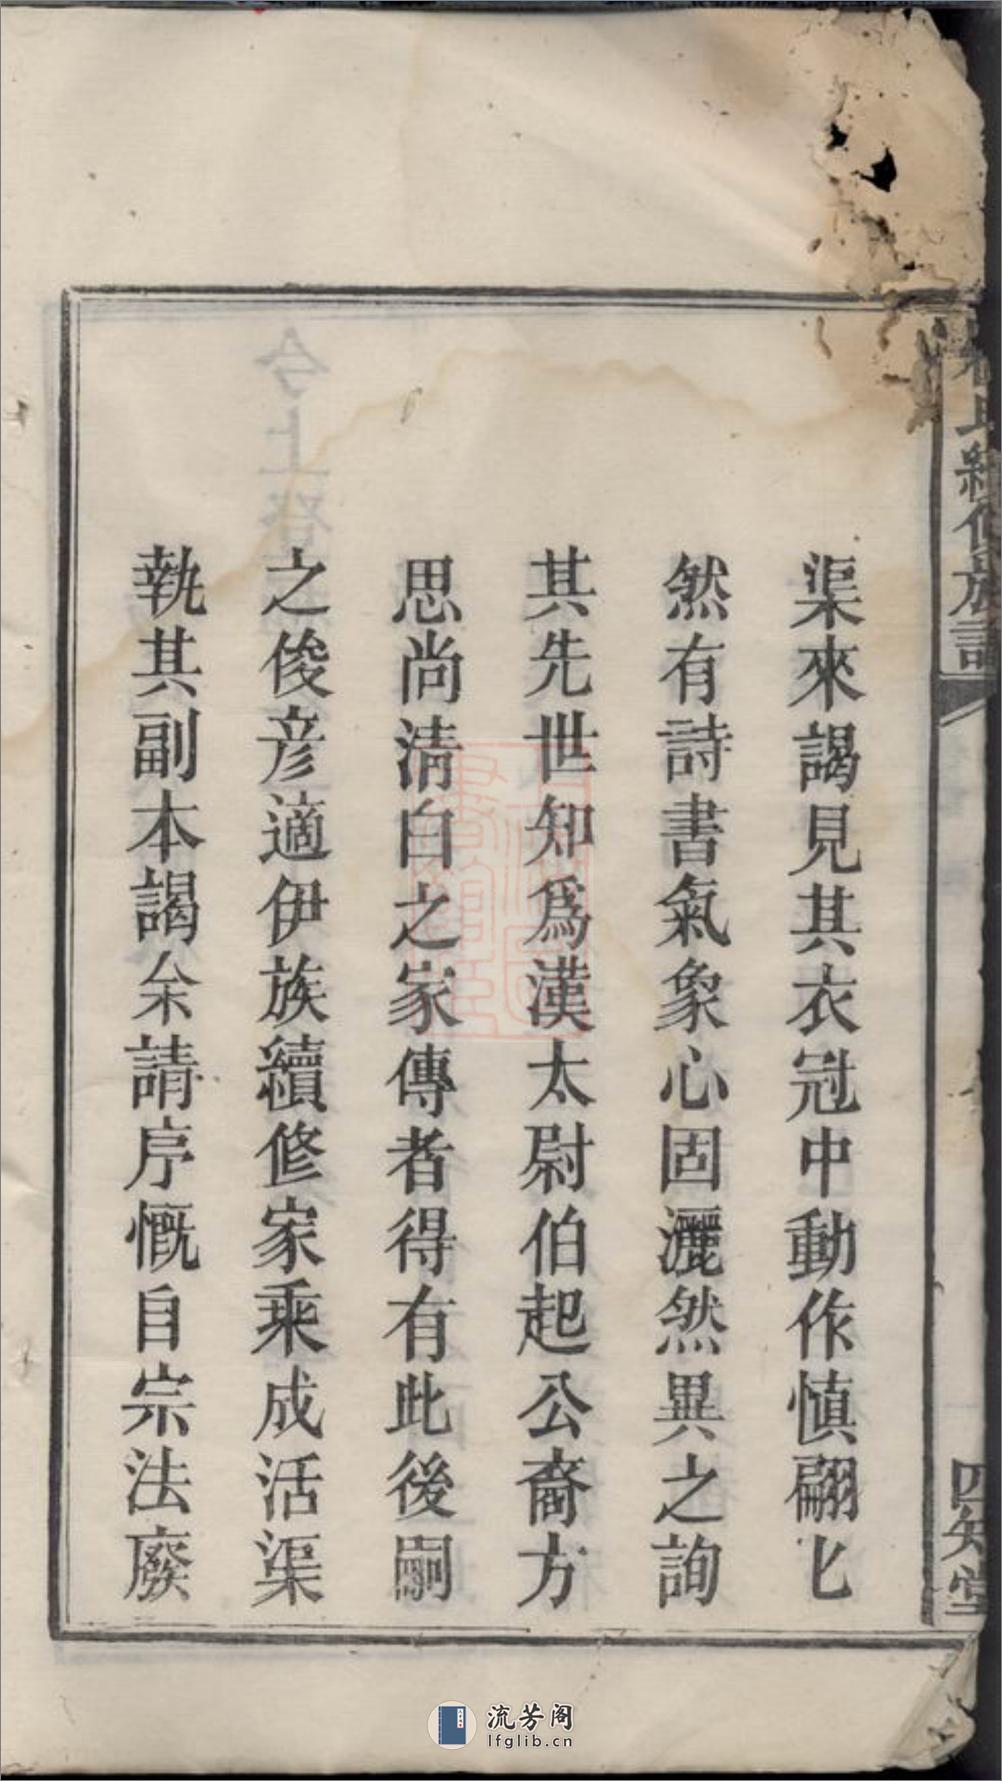 氏續修族譜
四知堂
渠來謁見其衣冠中動作慎翩匕
然有詩書氣象心固灑然異之詢
其先世知爲漢太尉伯起公裔方
思尚淸白之家傳者得有此後嗣
之俊彦適伊族續修家乘成活渠
執其副本謁余請序慨自宗法廢
流芳阁
lfglib.cn